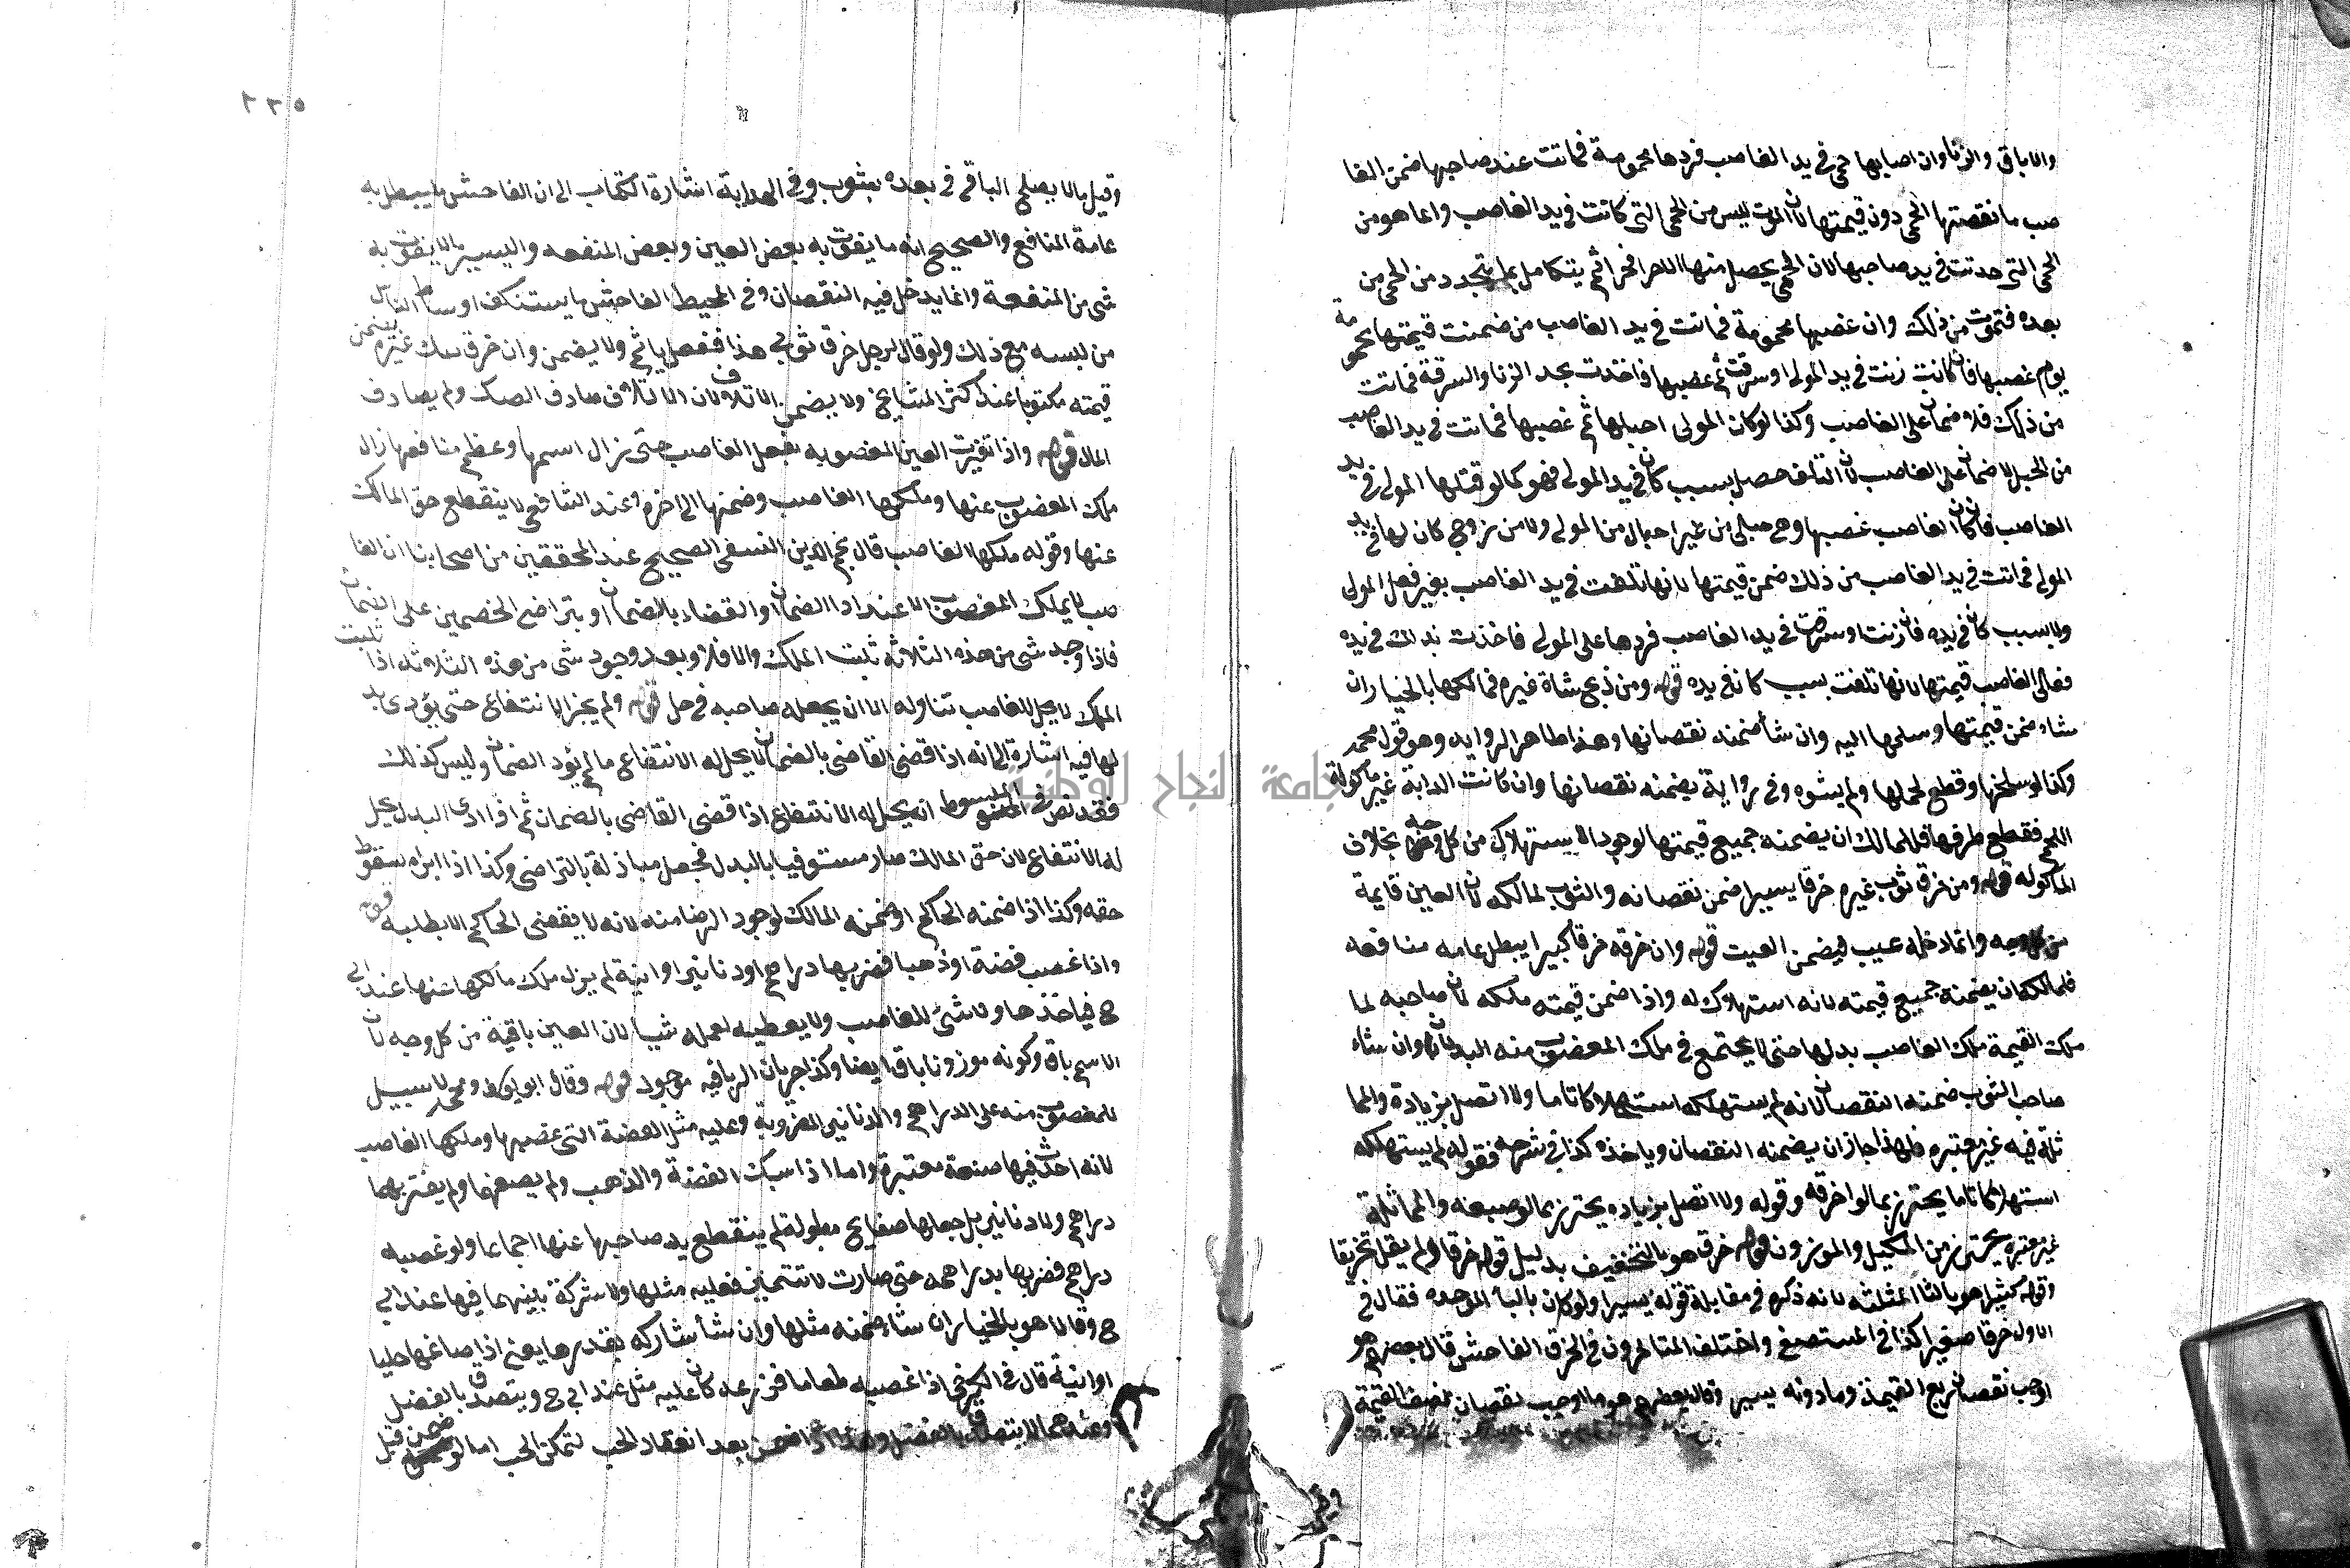 والاباق والزنا وان اصابها حمى في يد الغاصب فردها محمومة فماتت عند صاحبها ضمن الغا
صب ما نقصتها الحمى دون قيمتها لان الموت ليس من الحمى التي كانت في يد الغاصب وانما هو من
الحمى التي حدثت في يد صاحبها لان الحمى يحصل منها الالم جزا فجزا ثم يتكامل بما يتجدد من الحمى من
بعده فتموت من ذلك وان غصبها محمومة فماتت في يد الغاصب من ضمنت قيمتها محمومة
يوم غصبها فان كانت زنت في يد المولى او سرقت ثم غصبها فاخذت بحد الزنا والسرقة فماتت
من ذلك فلا ضمان على الغاصب وكذا لو كان المولى احبلها ثم غصبها فماتت في يد الغاصب
من الحبل لا ضمان على الغاصب لان التلف حصل بسبب كان في يد المولى فهو كما لو قتلها المولى في يد
الغاصب فان كان الغاصب غصبها وهي حبلى من غير احبال من المولى ولا من زوج كان لها في يد
المولى فماتت في يد الغاصب من ذلك ضمن قيمتها لانها تلفت في يد الغاصب بغير فعل المولى
ولا بسبب كان في يده فان زنت او سرقت في يد الغاصب فردها على المولى فاخذت بذلك في يده
فعلى الغاصب قيمتها لانها تلفت بسبب كان في يده قوله ومن ذبح شاة غيره فمالكها بالخيار ان
شاء ضمن قيمتها وسلمها اليه وان شا ضمنه نقصانها وهذا ظاهر الروايه وهو قول محمد
وكذا لو سلخها وقطع لحمها ولم يشوه وفي رواية يضمنه نقصانها وان كانت الدابة غير ماكولة
اللحم فقطع طرفها فللمالك ان يضمنه جميع قيمتها لوجود الاستهلاك من كل وجه بخلاف
الماكوله قوله ومن خرق ثوب غيره خرقا يسيرا ضمن نقصانه والثوب لمالكه لان العين قايمة
من كل وجه وانما دخله عيب فيضمن العيب قوله وان خرقه خرقا كبيرا يبطل عامه منافعه
فلمالكه ان يضمنه جميع قيمته لانه استهلاك له واذا ضمن قيمته ملكه لان صاحبه لما
ملك القيمة ملك الغاصب بدلها حتى لا يجتمع في ملك المغصوب منه البدلان وان شاء
صاحب الثوب ضمنه النقصان لانه لم يستهلكه استهلاكا تاما ولا اتصل بزيادة والمما
ثلة فيه غير معتبره فلهذا جاز ان يضمنه النقصان وياخذه كذا في شرحه فقوله لم يستهلكه
استهلاكا تاما يحترز بما لو احرقه وقوله ولا اتصل بزياده يحترز بما لو صبغه والمماثلة
غير معتبره يحترز من المكيل والموزون قوله خرقا هو بالتخفيف بدليل قوله خرقا ولم يقل تخريقا
وقوله كثيرا هو بالثا المثلثه لانه ذكره في مقابلة قوله يسيرا ولو كان بالبا الموحده فقال في
الاول خرقا صغيرا كذا في المستصفى واختلف المتاخرون في الخرق الفاحش قال بعضهم هو
اوجب نقصان ربع القيمة وما دونه يسير وقال بعضهم هو ما اوجب نقصان نصف القيمة
٢٣٥
وقيل ما لا يصلح الباقي في بعده بثوب وفي الهداية اشارة الكتاب الى ان الفاحش ما يبطل به
عامة المنافع والصحيح انه ما يفوت به بعض العين وبعض المنفعه واليسير ما لا يفوت به
شي من المنفعة وانما يدخل فيه النقصان وفي المحيط الفاحش ما يستنكف اوساط الناس
من لبسه مع ذلك ولو قال لرجل خرق ثوبي هذا ففعل ياثم ولا يضمن وان خرق صك غيره يضمن
قيمته مكتوبا عند اكثر المشايخ ولا يضمن الاتلاف لان الاتلاف صادف الصك ولم يصادف
المال قوله واذا تغيرت العين المغصوبه بفعل الغاصب حتى زال اسمها وعظم منافعها زال
ملك المغصوب عنها وملكها الغاصب وضمنها الى اخره وعند الشافعي لا ينقطع حق المالك
عنها وقوله ملكها الغاصب قال نجم الدين النسفي الصحيح عند المحققين من اصحابنا ان الغا
صب لا يملك المغصوب الا عند ادا الضمان او القضاء بالضمان او بتراضي الخصمين على الضمان
فاذا وجد شي من هذه الثلاثه ثبت الملك والا فلا وبعد وجود شي من هذه الثلاثه اذا ثبت
الملك لا يحل للغاصب تناوله الا ان يجعله صاحبه في حل قوله ولم يجز الانتفاع حتى يؤدي بد
لها فيه اشارة الى انه اذا قضى القاضي بالضمان لا يحل له الانتفاع ما لم يؤد الضمان وليس كذلك
فقد نص في المبسوط انه يحل له الانتفاع اذا قضى القاضي بالضمان ثم اذا ادى البدل يحل
له الانتفاع لان حق المالك صار مستوفيا بالبدل فجعل مبادلة بالتراضي وكذا اذا ابراه سقط
حقه وكذا اذا ضمنه الحاكم او ضمنه المالك لوجود الرضا منه لانه لا يقضي الحاكم الا بطلبه قوله
واذا غصب فضة او ذهبا فضربها دراهم او دنانير او انية لم يزل ملك مالكها عنها عند ابي
ح فياخذها ولا شئ للغاصب ولا يعطيه لعمله شيا لان العين باقية من كل وجه لان
الاسم باق وكونه موزونا باق ايضا وكذا جريان الربا فيه موجود قوله وقال ابو يوسف ومحمد لا سبيل
للمغصوب منه على الدراهم والدنانير المضروبة وعليه مثل الفضة التي غصبها وملكها الغاصب
لانه احدث فيها صنعة معتبرة واما اذا سبك الفضة والذهب ولم يصغها ولم يضربها
دراهم ولا دنانير بل جعلها صفايح مطولة لم ينقطع يد صاحبها عنها اجماعا ولو غصبه
دراهم فضربها بدراهمه حتى صارت لا تتميز فعليه مثلها ولا شركة بينهما فيها عند ابي
ح وقالا هو بالخيار ان شاء ضمنه مثلها وان شا شاركه بقدرها يعني اذا صاغها حليا
او انية قال في الكرخي اذا غصبه طعاما فزرعه كان عليه مثل عند ابي ح ويتصدق بالفضل
وعندهما لا يتصدق بالفضل وهذا اذا ضمن بعد انعقاد الحب لتمكن الحب اما لو ضمن قبل
جامعة النجاح الوطنية